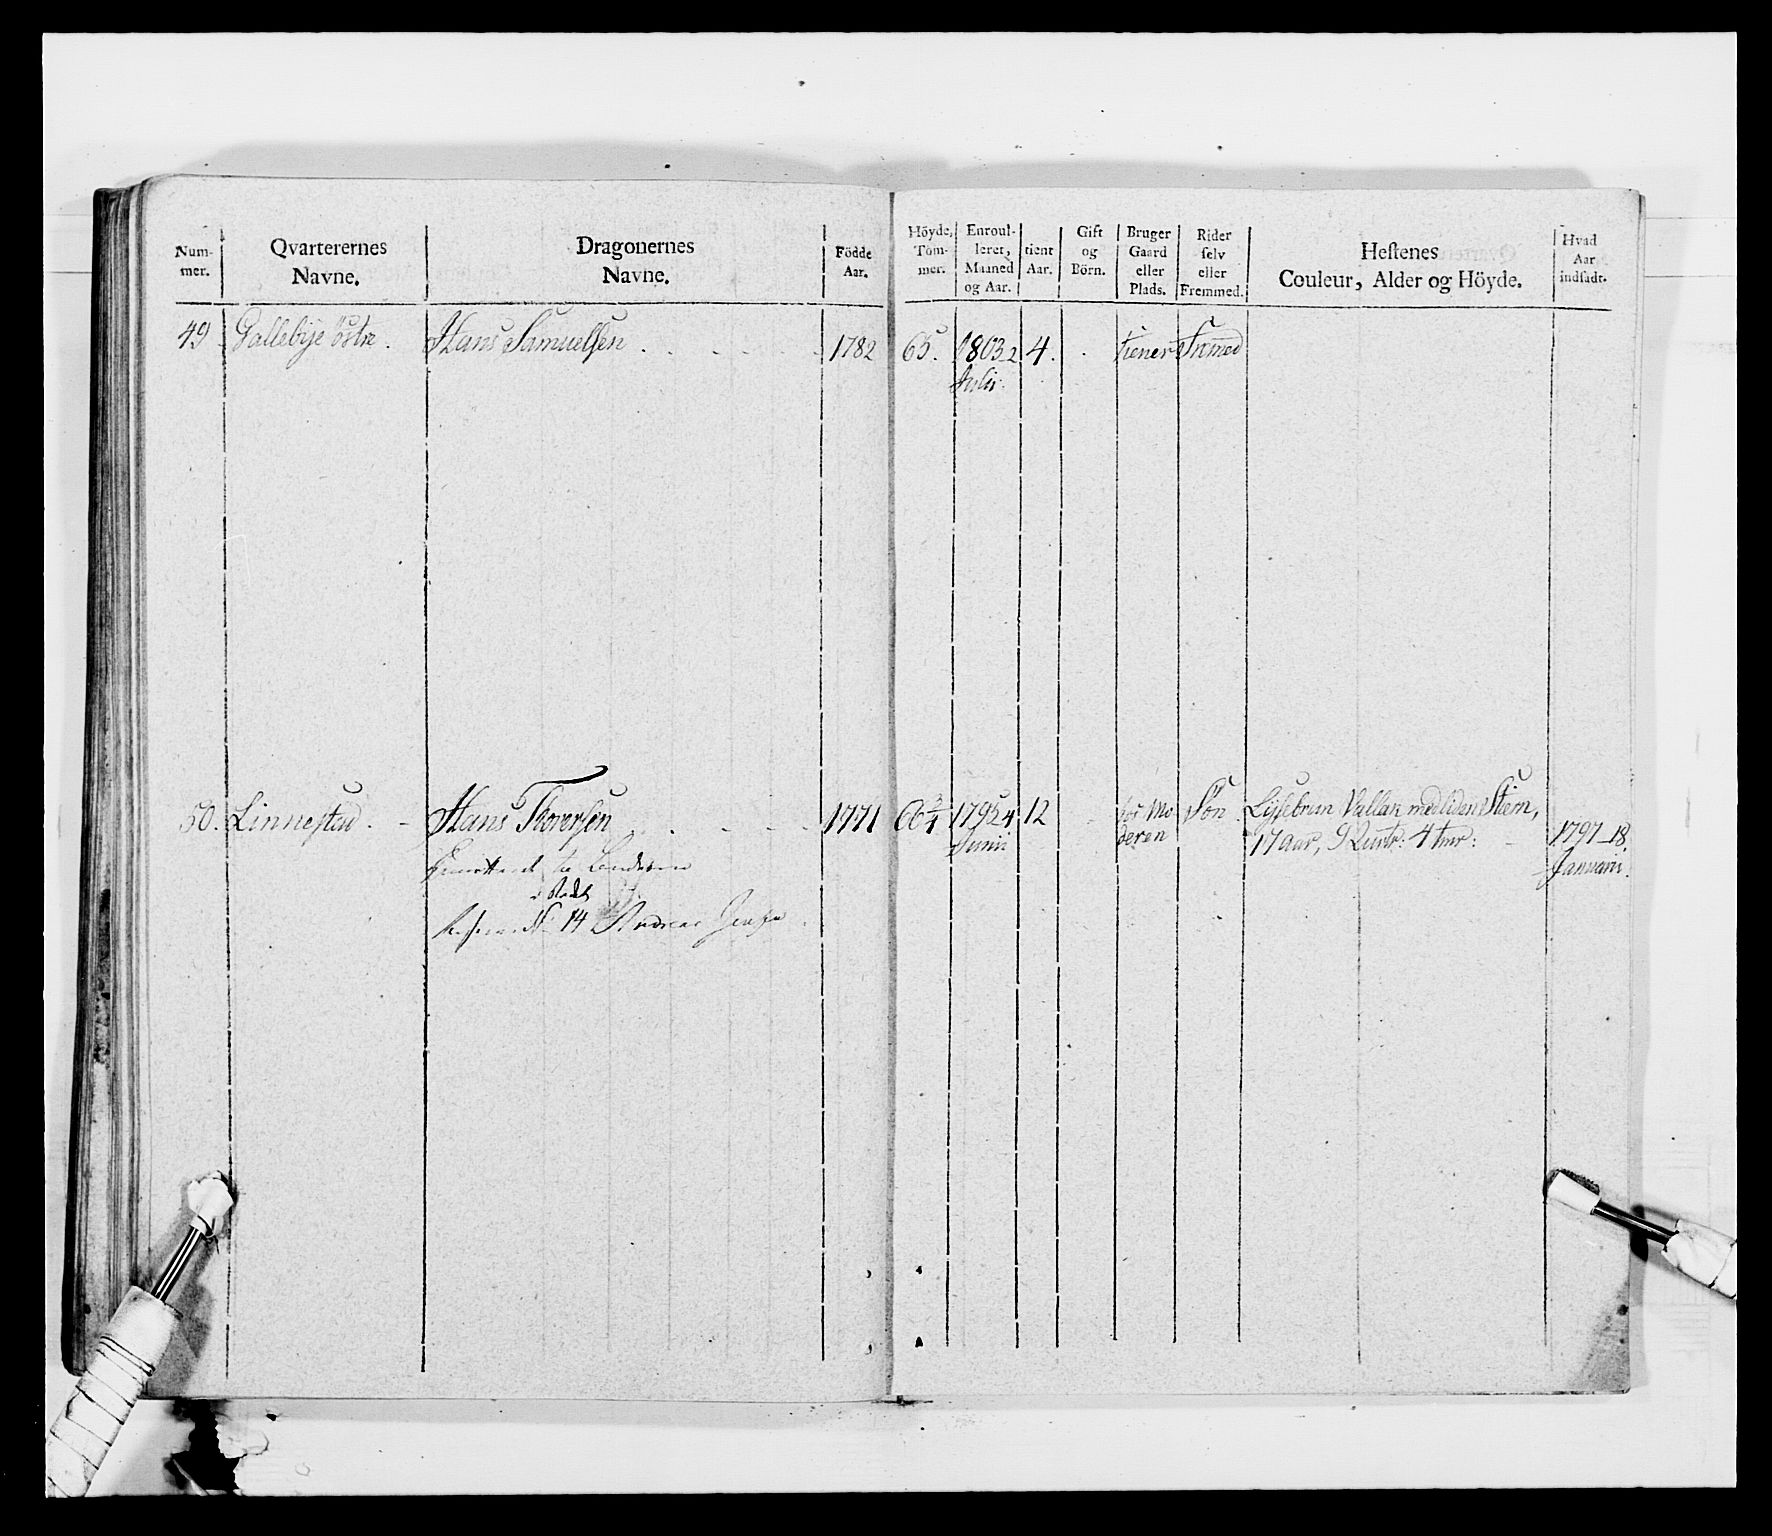 Num-
mer.
Qvarterernes
Navne.
Dragonernes
Navne.
Födde
Aar.
Höyde,
Tom-
mer.
Enroul-
leret,
Maaned
og Aar.
tient
Aar.
Gift
og
Börn.
Bruger
Gaard
eller
Plads.
Rider
selv
eller
Fremmed.
Hestenes
Couleur, Alder og Höyde.
Hvad
Aar
indsadt.
49 Gallebye östre. Hans Samuelsen 1782 65. 1803 2 4. tiener
Julii.
50. Linnestad. Hans Thoresen 1771 66 3/4 1795 4 12 hos Mo Sön Lysebrun Vallak med liden Stiern,
Junii deren 17 Aar, 9 Quart: 4 tmr: 1797 18.
Januarii.
No 14 Andreas